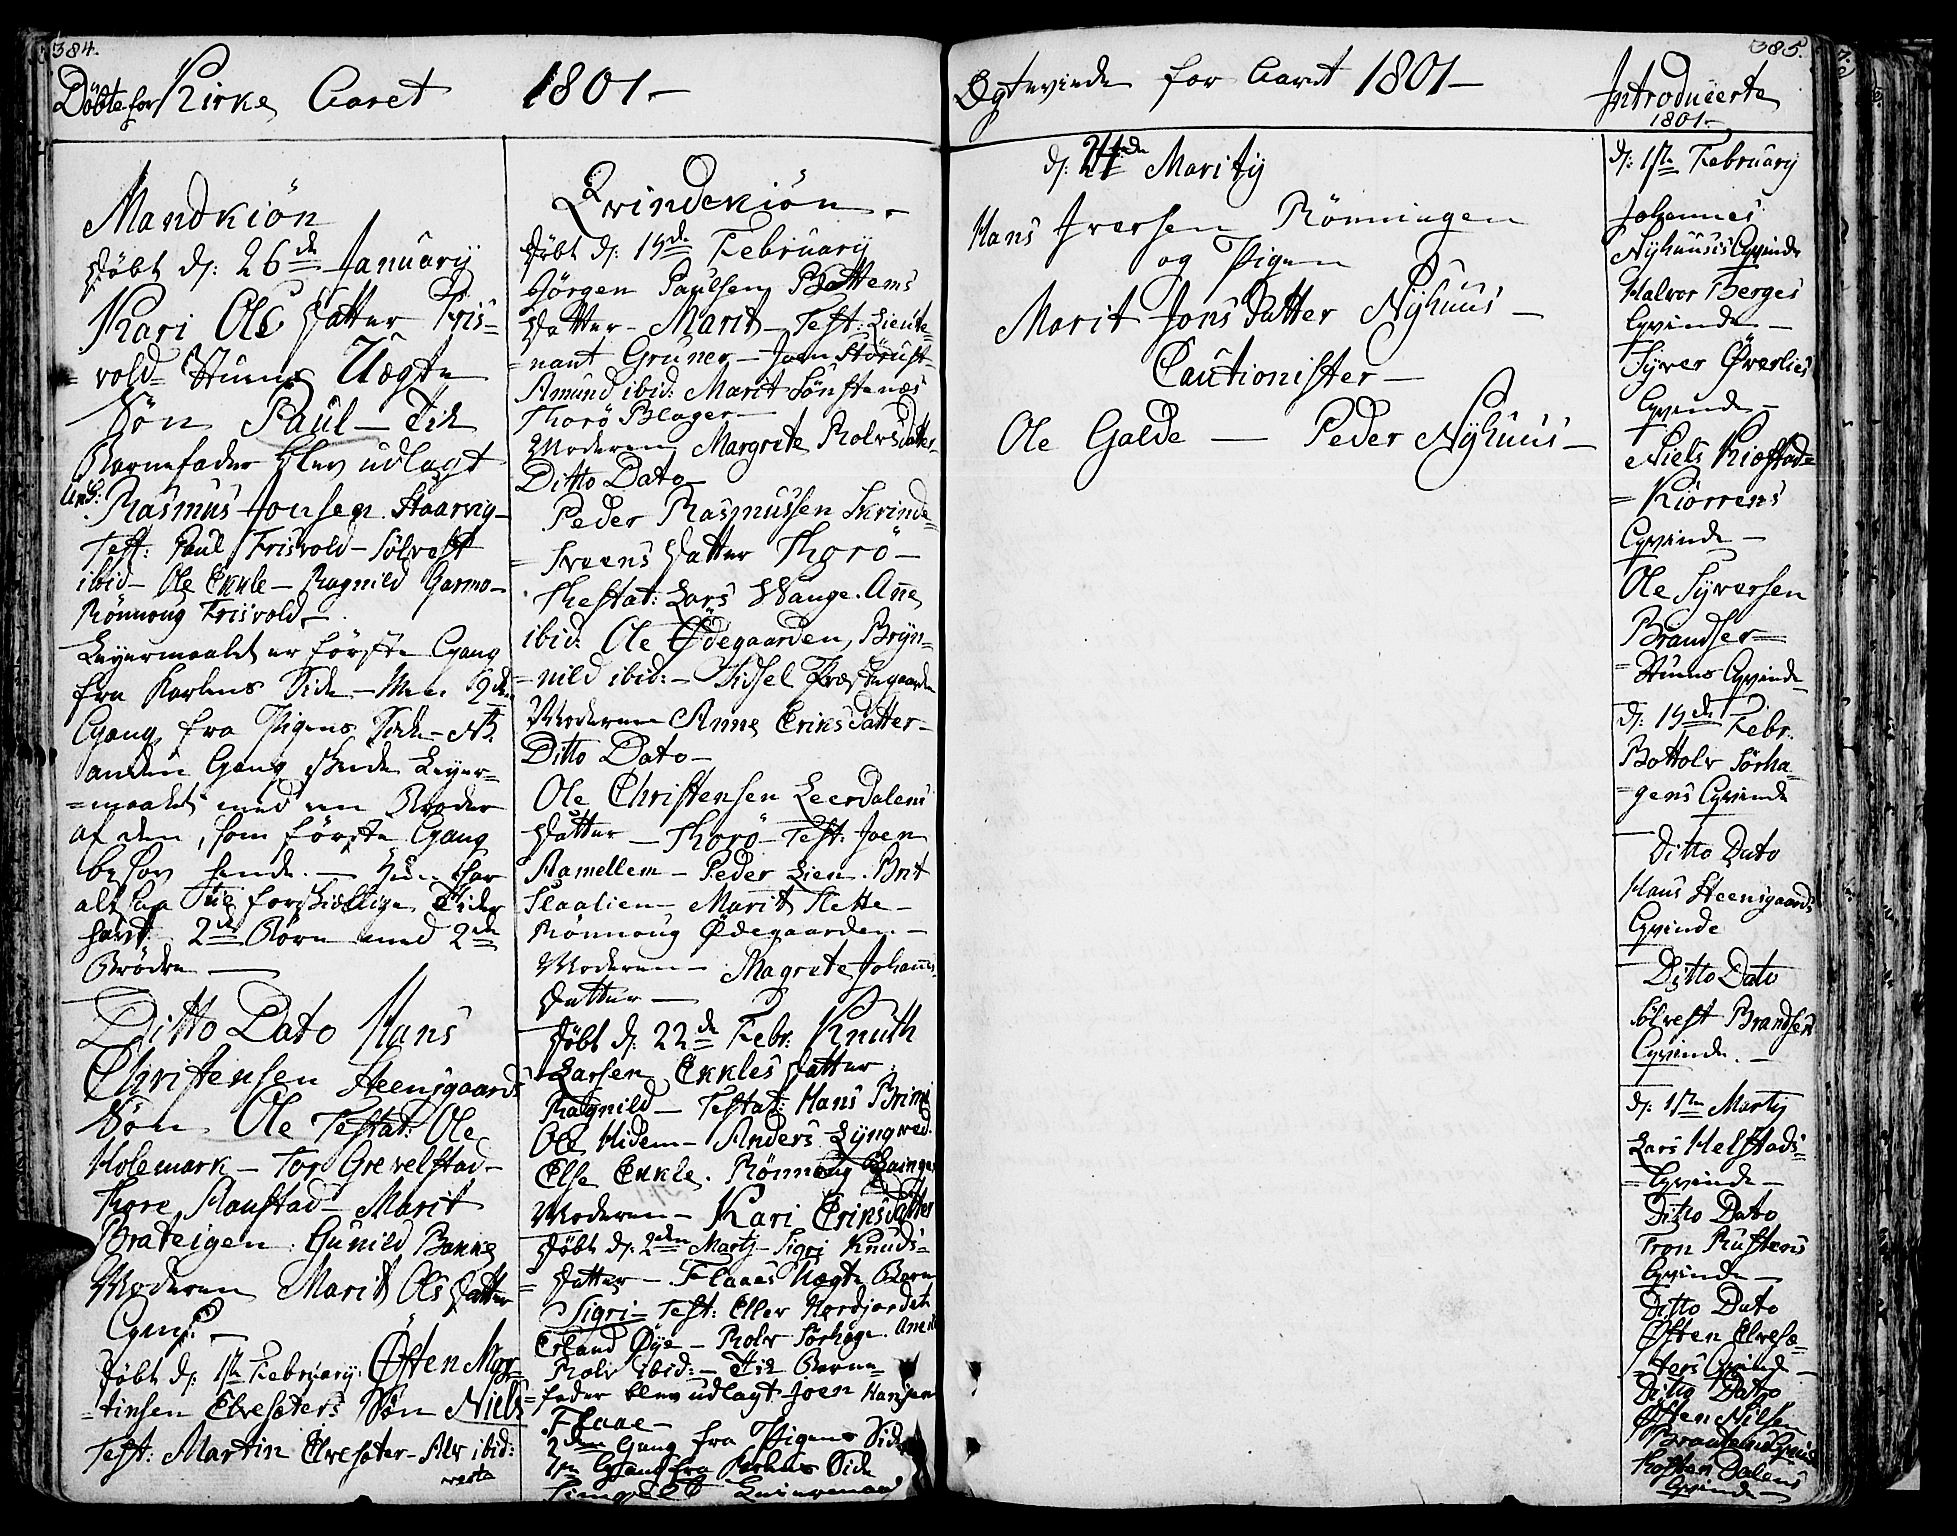 384.
Döbte for Kirke Aaret 1801 –
Mandkiön
Döbt d: 26de January
Kari Ols Datter Fris=
=vold= Stuens Uægte
Sön Paul – Til
Barnefader blev udlagt
Ung: Rasmus Jonsen Staarvig –
Test: Paul Frisvold – Sölvest
ibid – Ole Ekkle – Ragnild Garmo –
Rönnoug Frisvold –
Leyermaalet er förste Gang
fra Karlens Side – Men 2den
Gang fra Pigens Side – NB.
anden Gang skeede Leyer=
=maalet med en Broder
af den, som förste Gang
besov hende. – Hun har
altsaa Tvé forskiællige Tider
havt 2de Börn med 2de
Brödre –
Ditto Dato Hans
Christensen Steensgaards
Sön Ole Testat: Ole
Holemark – Tor Grevelstad –
Thore Raustad – Marit
Brateigen. Gunild Bakke
Moderen Marit Ols Datter
Döbt d: 1ste February: Østen Mor=
=tinsen Elvesæters Sön Niels
Test: Martin Elvesæter – Alv ibid:
verte
Qvindekiön –
Döbt d: 15de February
Jörgen Paulsen Blattems
Datter – Marit – Test: Lieute=
=nant Gruner – Joen Störust –
Amund ibid: Marit Sönstenæs
Thorö Blager –
Moderen Margrete Rolvsdatter –
Ditto Dato –
Peder Rasmussen Skrinde=
=sveens Datter Thorö –
Thestat: Lars Wange. Anne
ibid: Ole Ødegaarden, Bryn=
=nild ibid: – Sidsel Præstegaarden
Moderen Anne Eriksdatter –
Ditto Dato –
Ole Christensen Leerdalens
Datter – Thorö – Test: Joen
Aamellem – Peder Lien. Brit
Slaalien – Marit Slette –
Rönnoug Ødegaarden –
Moderen – Magrete Johannes
Datter –
Döbt d: 22de Febr: Knuth
Larsen Ekkles Datter
Ragnild – Testat: Hans Brimi
Ole Hidem – Anders Lyngved.
Else Ekkle. Rönnoug
Moderen – Kari Eriksdatter
Döbt d: 2den Marty – Sigri Knuds=
=datter – Flaaes Uægte Barn
Sigri – Test: Eller Nordjordet
Erland Øye – Rolv Sörhage.
Rolv ibid: – Til Barne=
=fader blev udlagt Joen Hansen
Flaae –
2den Gang fra Pigens Side
1ste Gang fra Karlens Side
Simpelt Leiermaal
385.
Ægteviede for Aaret 1801 –
d: 24de Marity
Hans Iversen Rönningen
og Pigen
Marit Jons Datter Nyhuus –
Cautionister –
Ole Galde – Peder Nyhuus –
Introducerte
1801 –
d: 1ste February
Johannes
Nyhuusis Qvinde
Halvor Berges
Qvinde –
Syver Øverlies
Qvinde –
Niels Kiestad=
=Kiörrens
Qvinde –
Ole Syversen
Brandser=
=Stuens Qvinde
d: 15de Febr.
Bottolv Sörha=
=gens Qvinde
Ditto Dato
Hans Steensgaards
Qvinde
Ditto Dato
Sölvest Brandsers
Qvinde. –
d: 1ste Marty
Lars Helstads=
=Qvinde –
Ditto Dato
Tron Rustens
Qvinde –
Ditto Dato
Østen Elvesæ=
=ters Qvinde
Ditto Dato
Østen Nilse
Torsten Dalens
Qvinde –